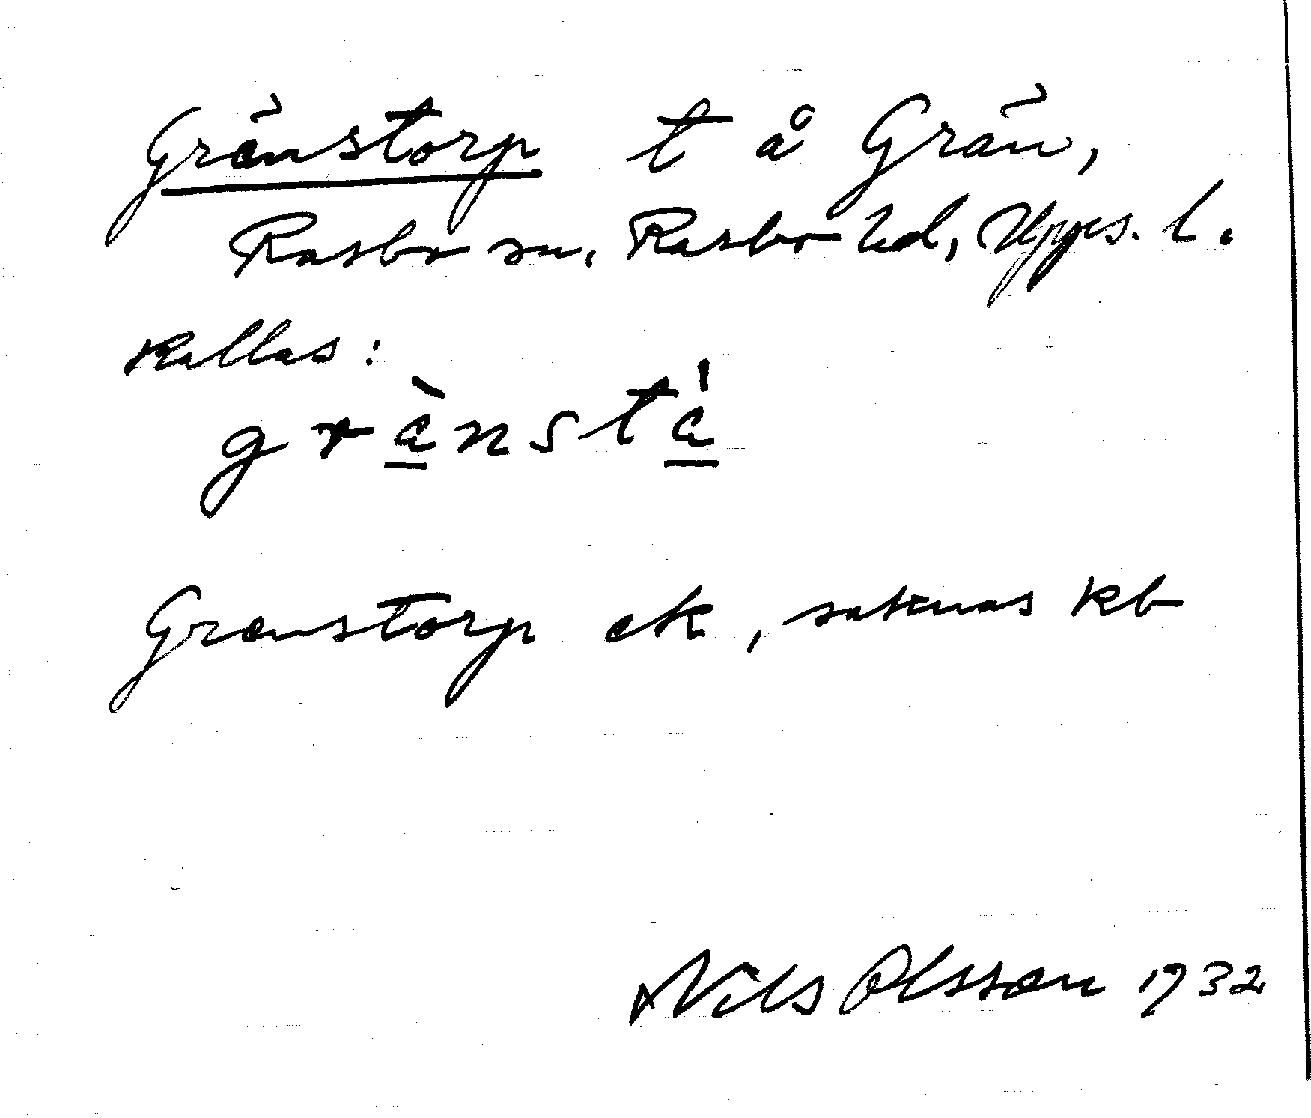 Gränstorp t å Grän,
Rasbo sn, Rasbo hd, Upps. l.
Kallas:
grànstá
Grenstorp ek, saknas kb
Nils Olsson 1932